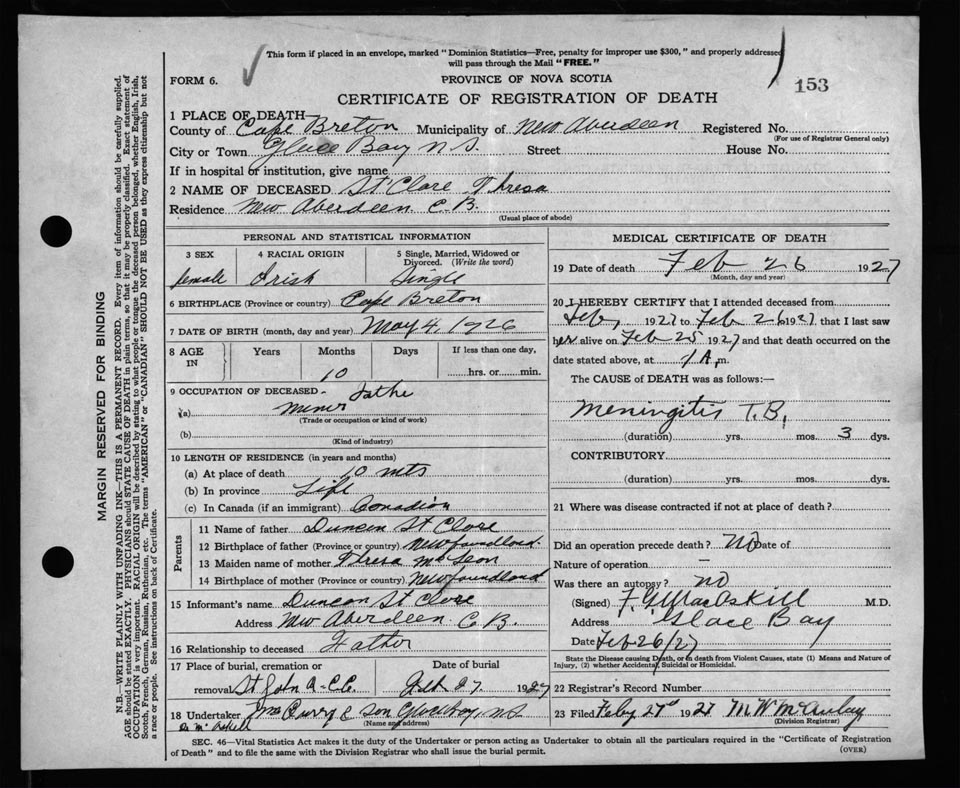 This form if placed in an envelope, marked "Dominion Statistics—Free, penalty for improper use $300," and properly addressed
will pass through the Mail "FREE."
FORM 6.
PROVINCE OF NOVA SCOTIA
153
CERTIFICATE OF REGISTRATION OF DEATH
1 PLACE OF DEATH
County of Cape Breton Municipality of New Aberdeen Registered No.
(For use of Registrar General only)
City or Town Glace Bay N S. Street House No.
If in hospital or institution, give name
2 NAME OF DECEASED St Clare Thresa
Residence New Aberdeen C. B.
(Usual place of abode)
PERSONAL AND STATISTICAL INFORMATION
3 SEX 4 RACIAL ORIGIN 5 Single, Married, Widowed or
Divorced. (Write the word)
female Irish Single
6 BIRTHPLACE (Province or country) Cape Breton
7 DATE OF BIRTH (month, day and year) May 4, 1926
8 AGE IN Years Months Days If less than one day,
10 hrs. or min.
9 OCCUPATION OF DECEASED Fathe
(a) Miner
(Trade or occupation or kind of work)
(b)
(Kind of industry)
10 LENGTH OF RESIDENCE (in years and months)
(a) At place of death 10 mts
(b) In province Life
(c) In Canada (if an immigrant) Canadian
Parents
11 Name of father Duncan St Clare
12 Birthplace of father (Province or country) Newfoundland
13 Maiden name of mother Thresa
14 Birthplace of mother (Province or country) Newfoundland
15 Informant's name Duncan St Clare
Address New Aberdeen C. B.
16 Relationship to deceased Father
17 Place of burial, cremation or Date of burial
removal St John 27 1927
18 Undertaker McCurry & Son
(Name and address)
MEDICAL CERTIFICATE OF DEATH
19 Date of death Feb 26 1927
(Month, day and year)
20 I HEREBY CERTIFY that I attended deceased from
Feby 1927 to Feb 26 1927, that I last saw
her alive on Feb 25 1927 and that death occurred on the
date stated above, at 1 A m.
The CAUSE of DEATH was as follows:—
Meningitis T.B.
(duration) yrs. mos. 3 dys.
CONTRIBUTORY
(duration) yrs. mos. dys.
21 Where was disease contracted if not at place of death?
Did an operation precede death? No Date of
Nature of operation –
Was there an autopsy? no
(Signed) MacAskill M.D.
Address Glace Bay
Date Feb 26/27
State the Disease causing Death, or in death from Violent Causes, state (1) Means and Nature of
Injury, (2) whether Accidental, Suicidal or Homicidal.
22 Registrar's Record Number
23 Filed Feby 27th 1927 M W McAulay
(Division Registrar)
SEC. 46—Vital Statistics Act makes it the duty of the Undertaker or person acting as Undertaker to obtain all the particulars required in the "Certificate of Registration
of Death" and to file the same with the Division Registrar who shall issue the burial permit.
(OVER)
MARGIN RESERVED FOR BINDING
N.B.—WRITE PLAINLY WITH UNFADING INK—THIS IS A PERMANENT RECORD. Every item of information should be carefully supplied.
AGE should be stated EXACTLY. PHYSICIANS should STATE CAUSE OF DEATH in plain terms, so that it may be properly classified. Exact statement of
OCCUPATION is very important. RACIAL ORIGIN will be described by stating to what people or tongue the deceased person belonged, whether English, Irish,
Scotch, French, German, Russian, Ruthenian, etc. The terms "AMERICAN" or "CANADIAN" SHOULD NOT BE USED as they express citizenship but not
a race or people. See instructions on back of Certificate.